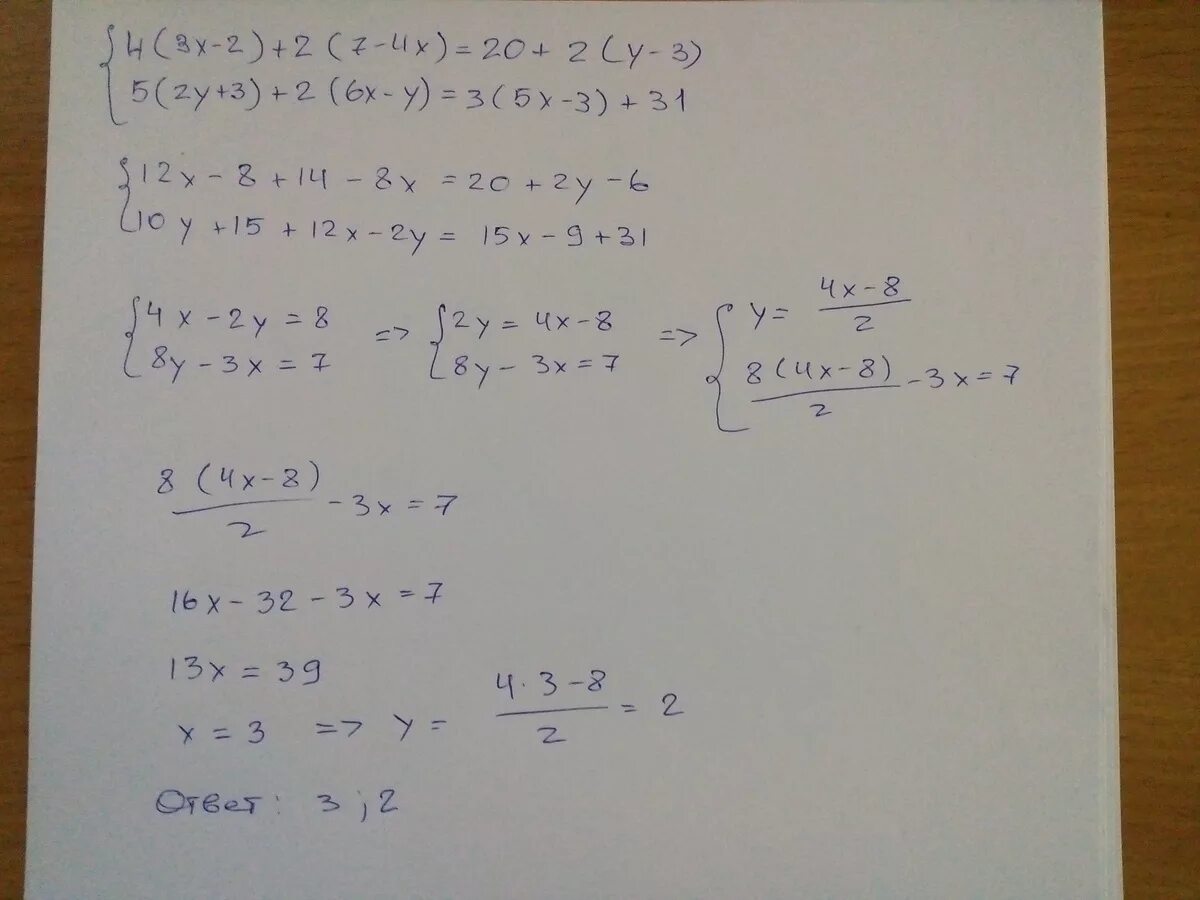 4(3x-2)+2(7-4x)=20+2(y-3)
5(2y+3)+2(6x-y)=3(5x-3)+31
12x-8+14-8x=20+2y-6
10y+15+12x-2y=15x-9+31
4x-2y=8 => 2y=4x-8 => y=(4x-8)/2
8y-3x=7 8y-3x=7 8(4x-8)/2-3x=7
8(4x-8)/2-3x=7
16x-32-3x=7
13x=39
x=3 => y=(4·3-8)/2=2
Ответ: 3;2